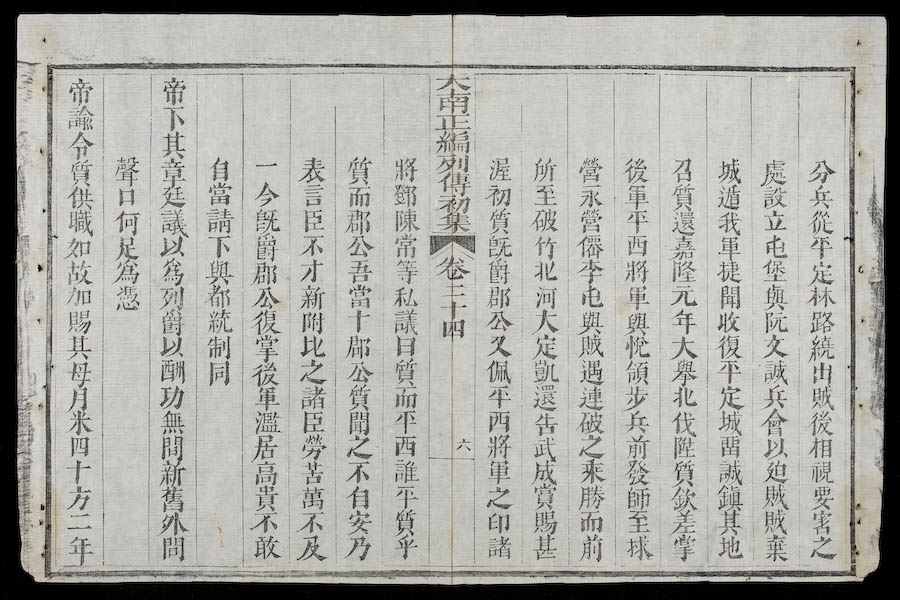 分兵從平定林路繞出賊後相視要害之
處設立屯堡與阮文誠兵會以廹賊賊棄
城遁我軍捷聞收復平定城畱誠鎭其地
召質還嘉隆元年大舉北伐陞質欽差掌
後軍平西將軍與悅領步兵前發師至球
營永營僊李屯與賊遇連破之乘勝而前
所至破竹北河大定凱還告武成賞賜甚
渥初質旣爵郡公又佩平西將軍之印諸
大南正編列傳初集 卷二十四 六
將鄧陳常等私議曰質而平西誰平質乎
質而郡公吾當十郡公質聞之不自安乃
表言臣不才新附比之諸臣勞苦萬不及
一今旣爵郡公復掌後軍濫居高貴不敢
自當請下與都統制同
帝下其章廷議以爲列爵以酬功無間新舊外間
聲口何足爲憑
帝諭令質供職如故加賜其母月米四十方二年